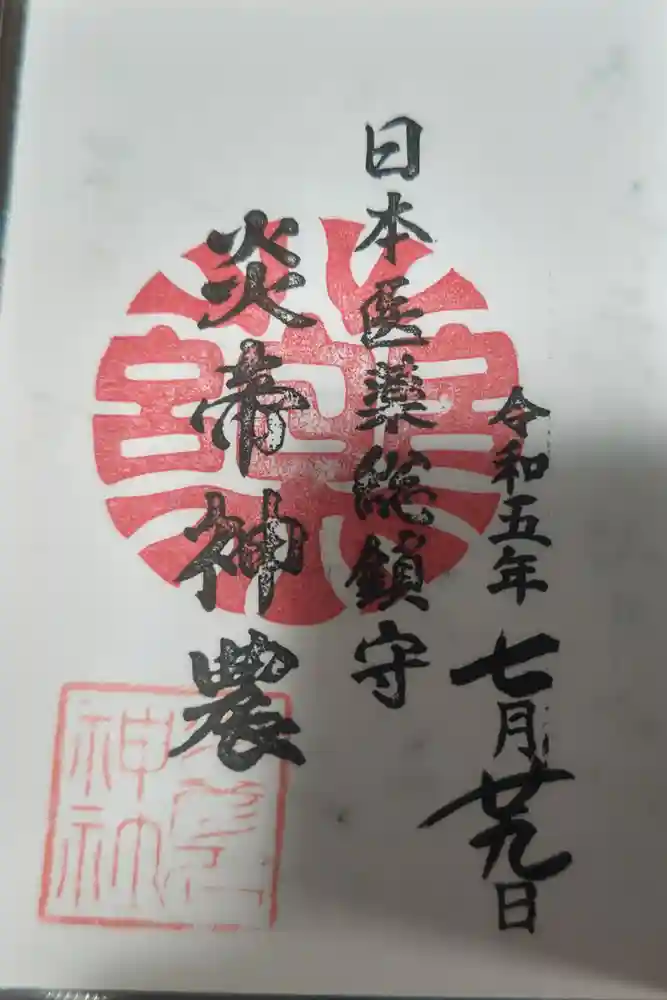 令和五年七月廿九日
日本医薬総鎮守
炎帝神農
神社